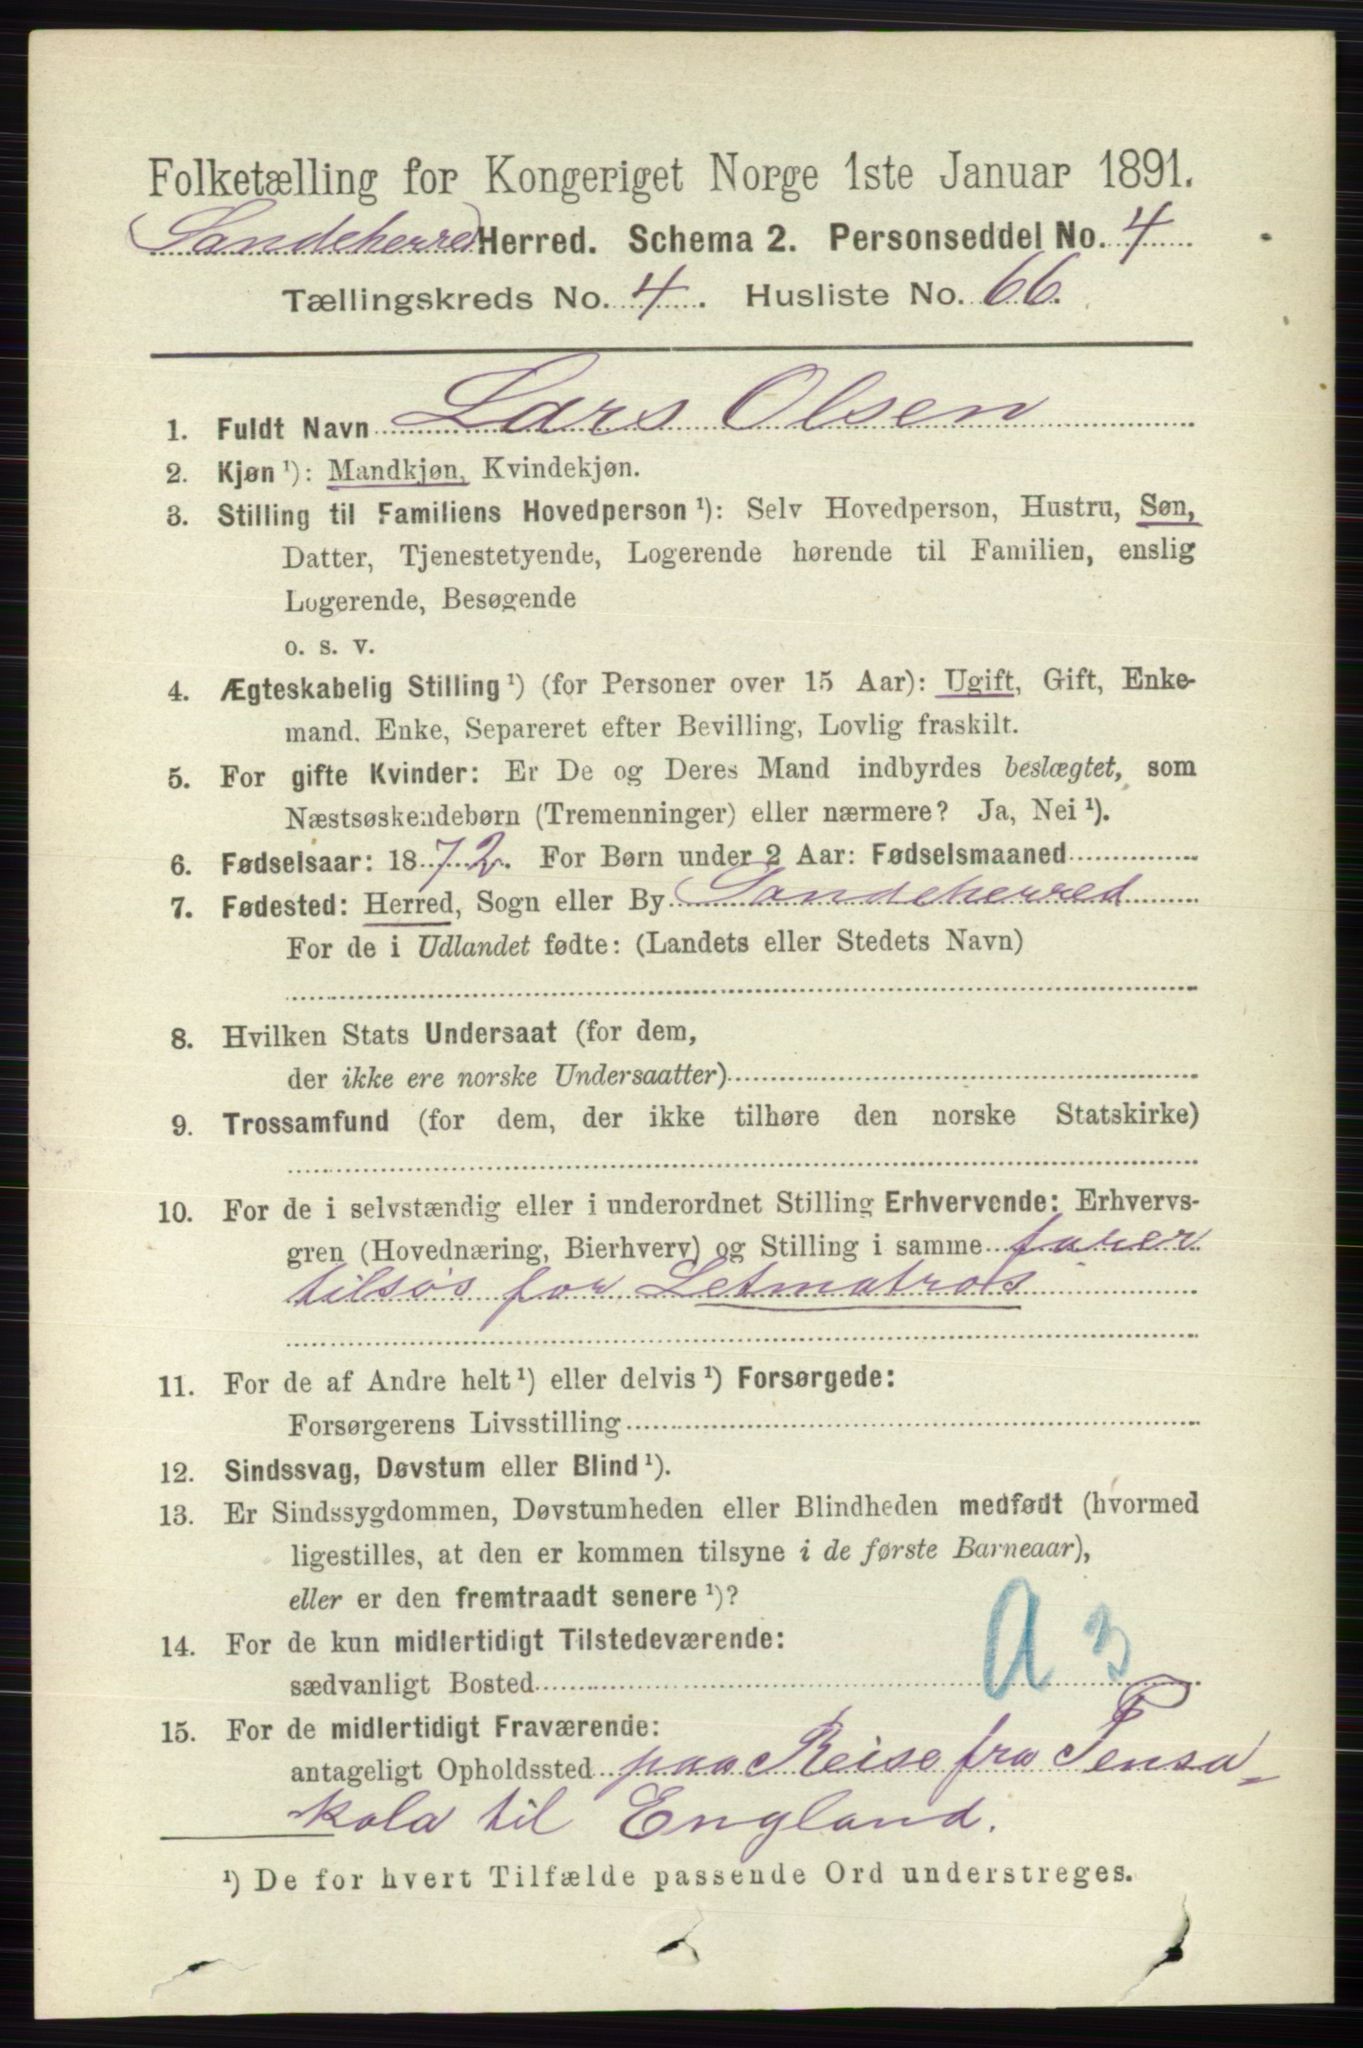 Folketælling for Kongeriget Norge 1ste Januar 1891.
Sandeherred Herred. Schema 2. Personseddel No. 4
Tællingskreds No. 4. Husliste No. 66.
1. Fuldt Navn Lars Olsen
2. Kjøn ¹): Mandkjøn, Kvindekjøn.
3. Stilling til Familiens Hovedperson ¹): Selv Hovedperson, Hustru, Søn,
Datter, Tjenestetyende, Logerende hørende til Familien, enslig
Logerende, Besøgende
o. s. v.
4. Ægteskabelig Stilling ¹) (for Personer over 15 Aar): Ugift, Gift, Enke-
mand. Enke, Separeret efter Bevilling, Lovlig fraskilt.
5. For gifte Kvinder: Er De og Deres Mand indbyrdes beslægtet, som
Næstsøskendebørn (Tremenninger) eller nærmere? Ja, Nei ¹).
6. Fødselsaar: 1872. For Børn under 2 Aar: Fødselsmaaned
7. Fødested: Herred, Sogn eller By Sandeherred
For de i Udlandet fødte: (Landets eller Stedets Navn)
8. Hvilken Stats Undersaat (for dem,
der ikke ere norske Undersaatter)
9. Trossamfund (for dem, der ikke tilhøre den norske Statskirke)
10. For de i selvstændig eller i underordnet Stilling Erhvervende: Erhvervs-
gren (Hovednæring, Bierhverv) og Stilling i samme farer
tilsøs for Letmatros
11. For de af Andre helt ¹) eller delvis ¹) Forsørgede:
Forsørgerens Livsstilling
12. Sindssvag, Døvstum eller Blind ¹).
13. Er Sindssygdommen, Døvstumheden eller Blindheden medfødt (hvormed
ligestilles, at den er kommen tilsyne i de første Barneaar),
eller er den fremtraadt senere ¹)?
14. For de kun midlertidigt Tilstedeværende:
sædvanligt Bosted
a 3
15. For de midlertidigt Fraværende:
antageligt Opholdssted paa Reise fra Pensa-
kola til England.
¹) De for hvert Tilfælde passende Ord understreges.